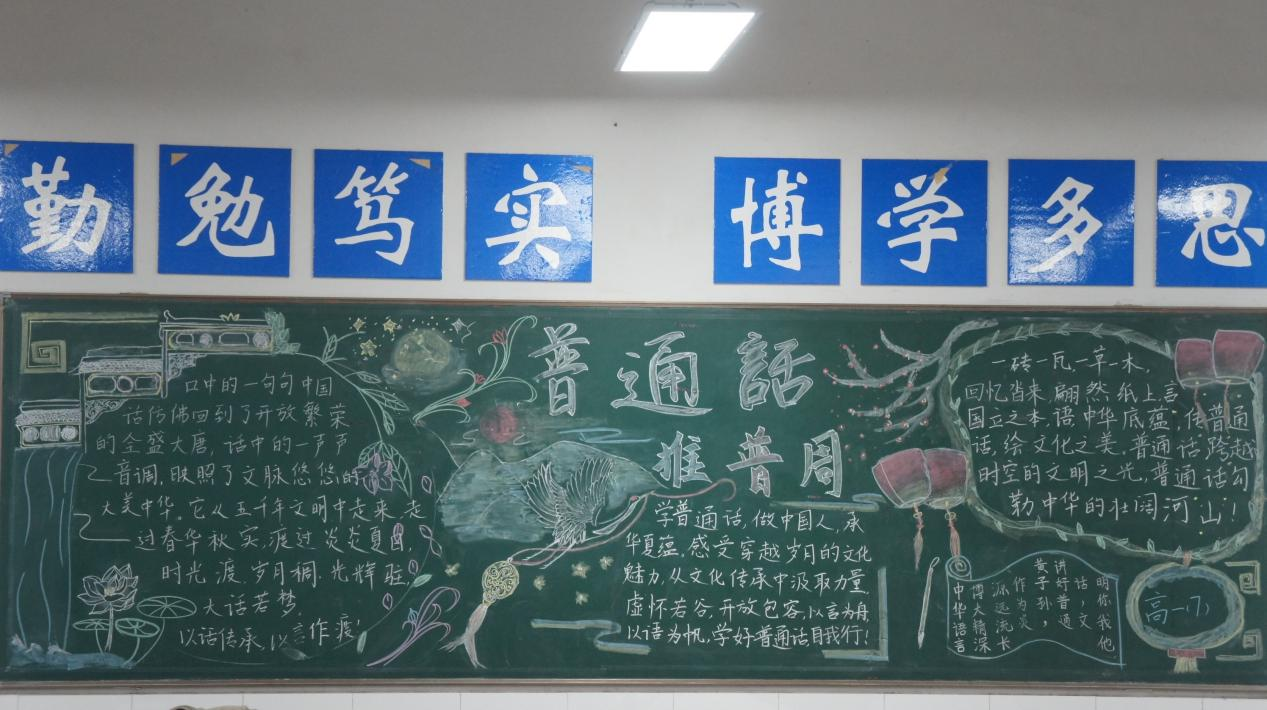 勤勉笃实 博学多思
普通話
推普周
口中的一句句中国
话仿佛回到了开放繁荣
的全盛大唐,话中的一声声
之音调,映照了文脉悠悠的
大美中华。它从五千年文明中走来,走
过春华秋实,渡过炎炎夏
时光渡,岁月稠,光辉驻,
大话若梦,
以话传承,以言作渡!
学普通话,做中国人,承
华夏蕴,感受穿越岁月的文化
魅力,从文化传承中汲取力量,
虚怀若谷,开放包容,以言为舟,
以语为帆,学好普通话目我行!
一砖一瓦一草一木,
回忆当来,翩然纸上言
国立之本,语中华底蕴,传普通
话,绘文化之美,普通话跨越
时空的文明之光,普通话勾
勒中华的壮阔河山!
中华语言
博大精深
源远流长
作为炎
黄子孙,
讲好普通
话,文
明你我他
高一(7)